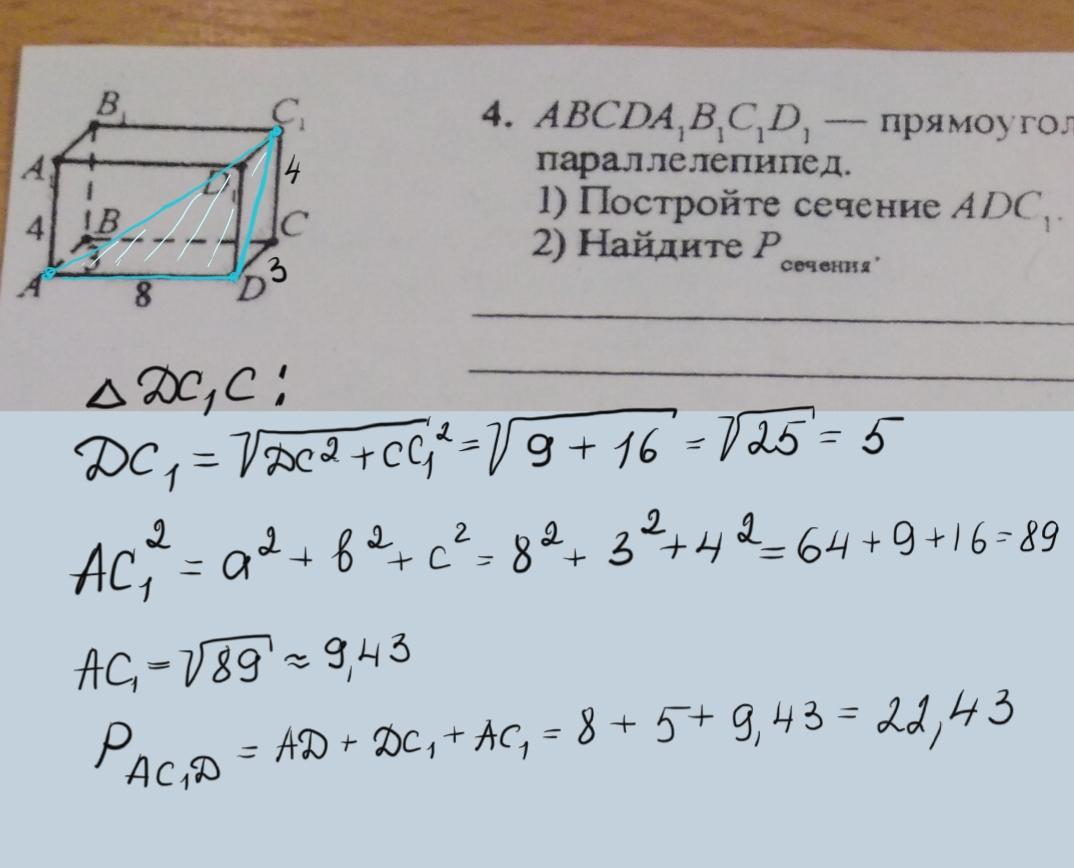 B₁
C₁
A₁
D₁
4
4
B
C
3
3
A
8
D
4. ABCDA₁B₁C₁D₁ — прямоугол
параллелепипед.
1) Постройте сечение ADC₁.
2) Найдите P сечения.
△ DC₁C :
DC₁ = √DC² + CC₁² = √9 + 16 = √25 = 5
AC₁² = a² + b² + c² = 8² + 3² + 4² = 64 + 9 + 16 = 89
AC₁ = √89 ≈ 9,43
P AC₁D = AD + DC₁ + AC₁ = 8 + 5 + 9,43 = 22,43